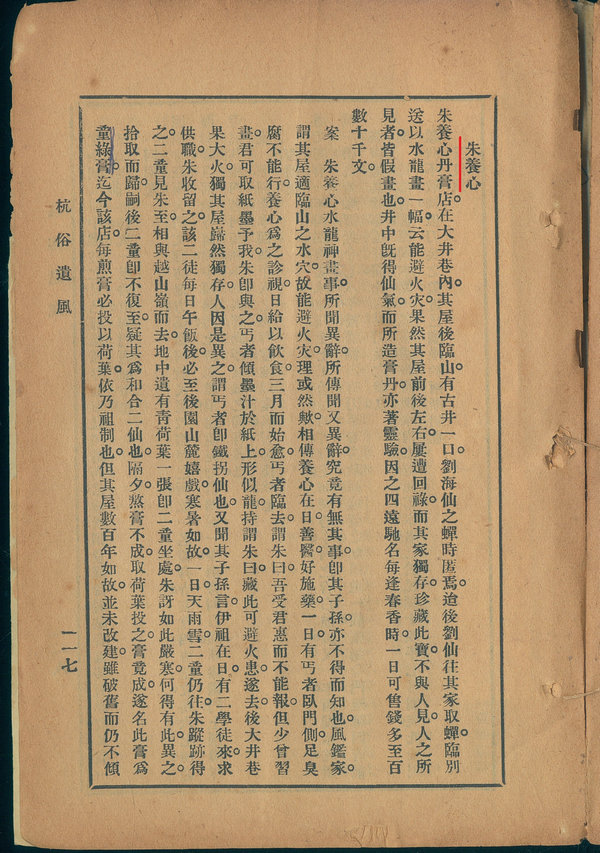 朱養心
朱養心丹膏店。在大井巷內。其屋後臨山。有古井一口。劉海仙之蟬時匿焉。迨後劉仙往其家取蟬。臨別
送以水龍畫一幅。云能避火災。果然其屋前後左右。屢遭回祿。而其家獨存。珍藏此寶。不與人見。人之所
見者。皆假畫也。井中既得仙氣。而所造膏丹。亦著靈驗。因之四遠馳名。每逢春香時。一日可售錢多至百
數十千文。
案 朱養心水龍神畫事。所聞異辭。所傳聞又異辭。究竟有無其事。卽其子孫。亦不得而知也。風鑑家
謂其屋適臨山之水穴。故能避火災。理或然歟。相傳養心在日。善醫好施藥。一日有丐者臥門側。足臭
腐不能行。養心爲之診視。日給以飲食。三月而始愈。丐者臨去。謂朱曰。吾受君惠而不能報。但少曾習
畫。君可取紙墨予我。朱卽與之。丐者傾墨汁於紙上。形似龍。持謂朱曰。藏此可避火患。遂去。後大井巷
果大火。獨其屋巋然獨存。人因是異之。謂丐者卽鐵拐仙也。又聞其子孫言。伊祖在日。有二學徒。來求
供職。朱收留之。該二徒每日午飯後。必至後園山麓嬉戲。寒暑如故。一日天雨雪。二童仍往。朱蹤跡得
之。二童見朱至。相與越山嶺而去。地中遺有靑荷葉一張。卽二童坐處。朱訝如此嚴寒。何得有此。異之。
拾取而歸。嗣後二童卽不復至。疑其爲和合二仙也。隔夕熬膏不成。取荷葉投之。膏竟成。遂名此膏爲
童綠膏。迄今該店。每煎膏必投以荷葉。依乃祖制也。但其屋數百年如故。並未改建。雖破舊而仍不傾
杭俗遺風
一一七